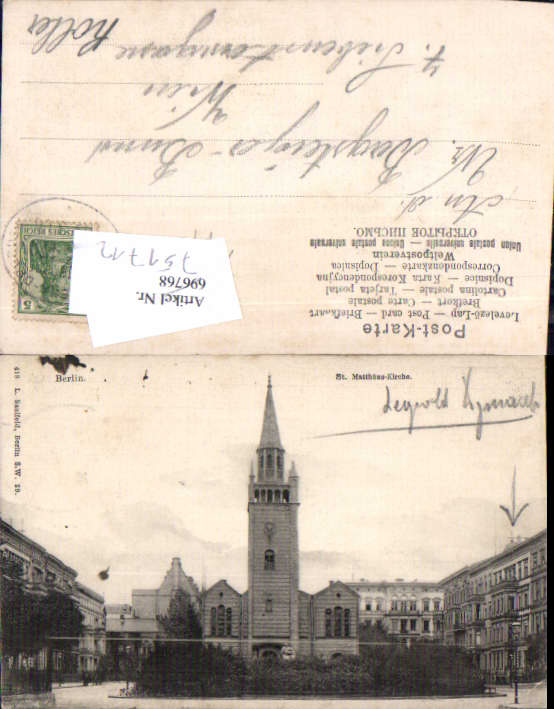 Post-Karte
Levelező-Lap — Post card — Briefkaart
Brefkort — Carte postale
Cartolina postale — Tarjeta postal
Dopisnice — Karta Korespondencyjna
Correspondenzkarte — Dopisnica
Weltpostverein
Union postale universelle — Unione postale universale
ОТКРЫТОЕ ПИСЬМО.
An d.
Wien
7. Siebensterngasse
DEUTSCHES REICH
5
Artikel Nr.
696768
751712
Berlin.
St. Matthäus-Kirche.
Leopold
418 L. Saalfeld, Berlin S.W. 29.